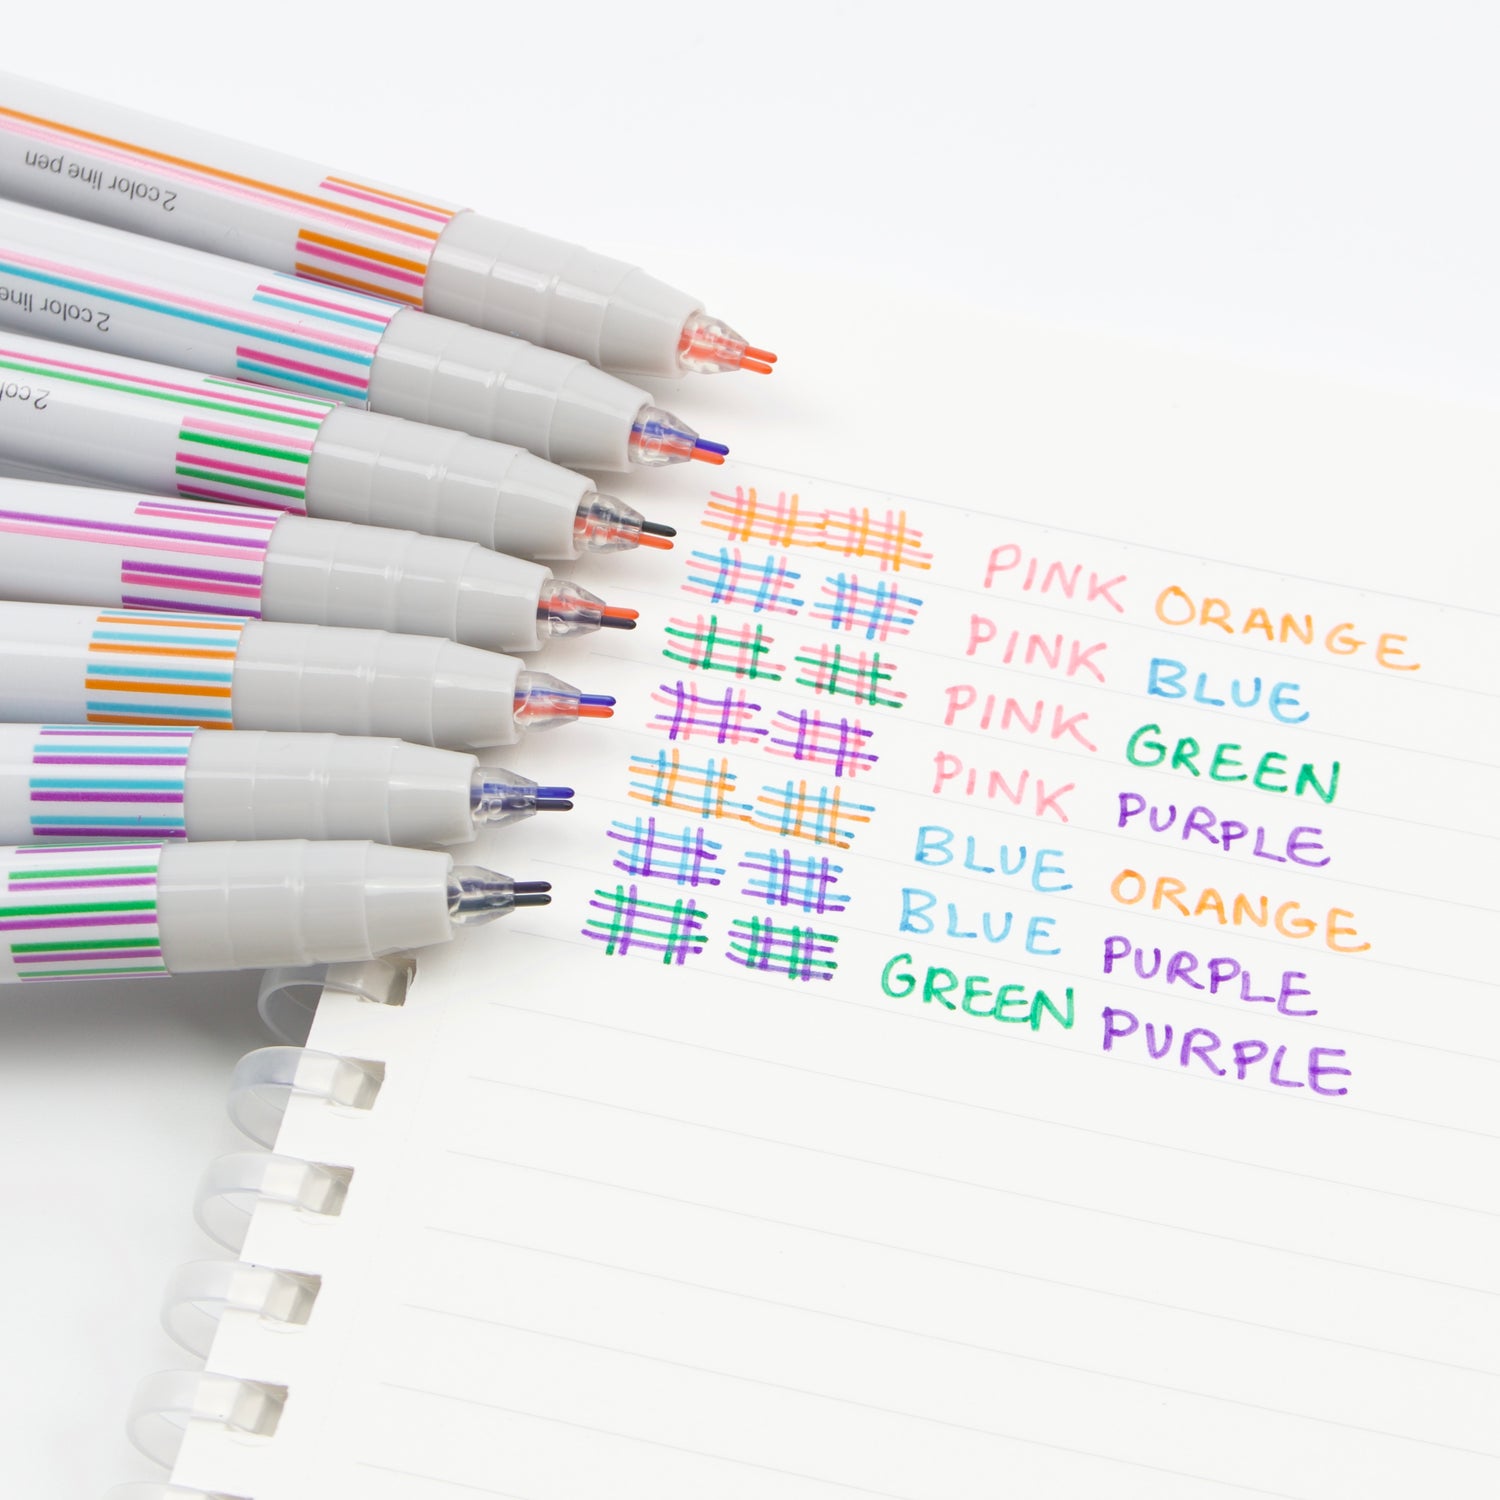 2 color line pen
2 color line
2 co
PINK ORANGE
PINK BLUE
PINK GREEN
PINK PURPLE
BLUE ORANGE
BLUE PURPLE
GREEN PURPLE